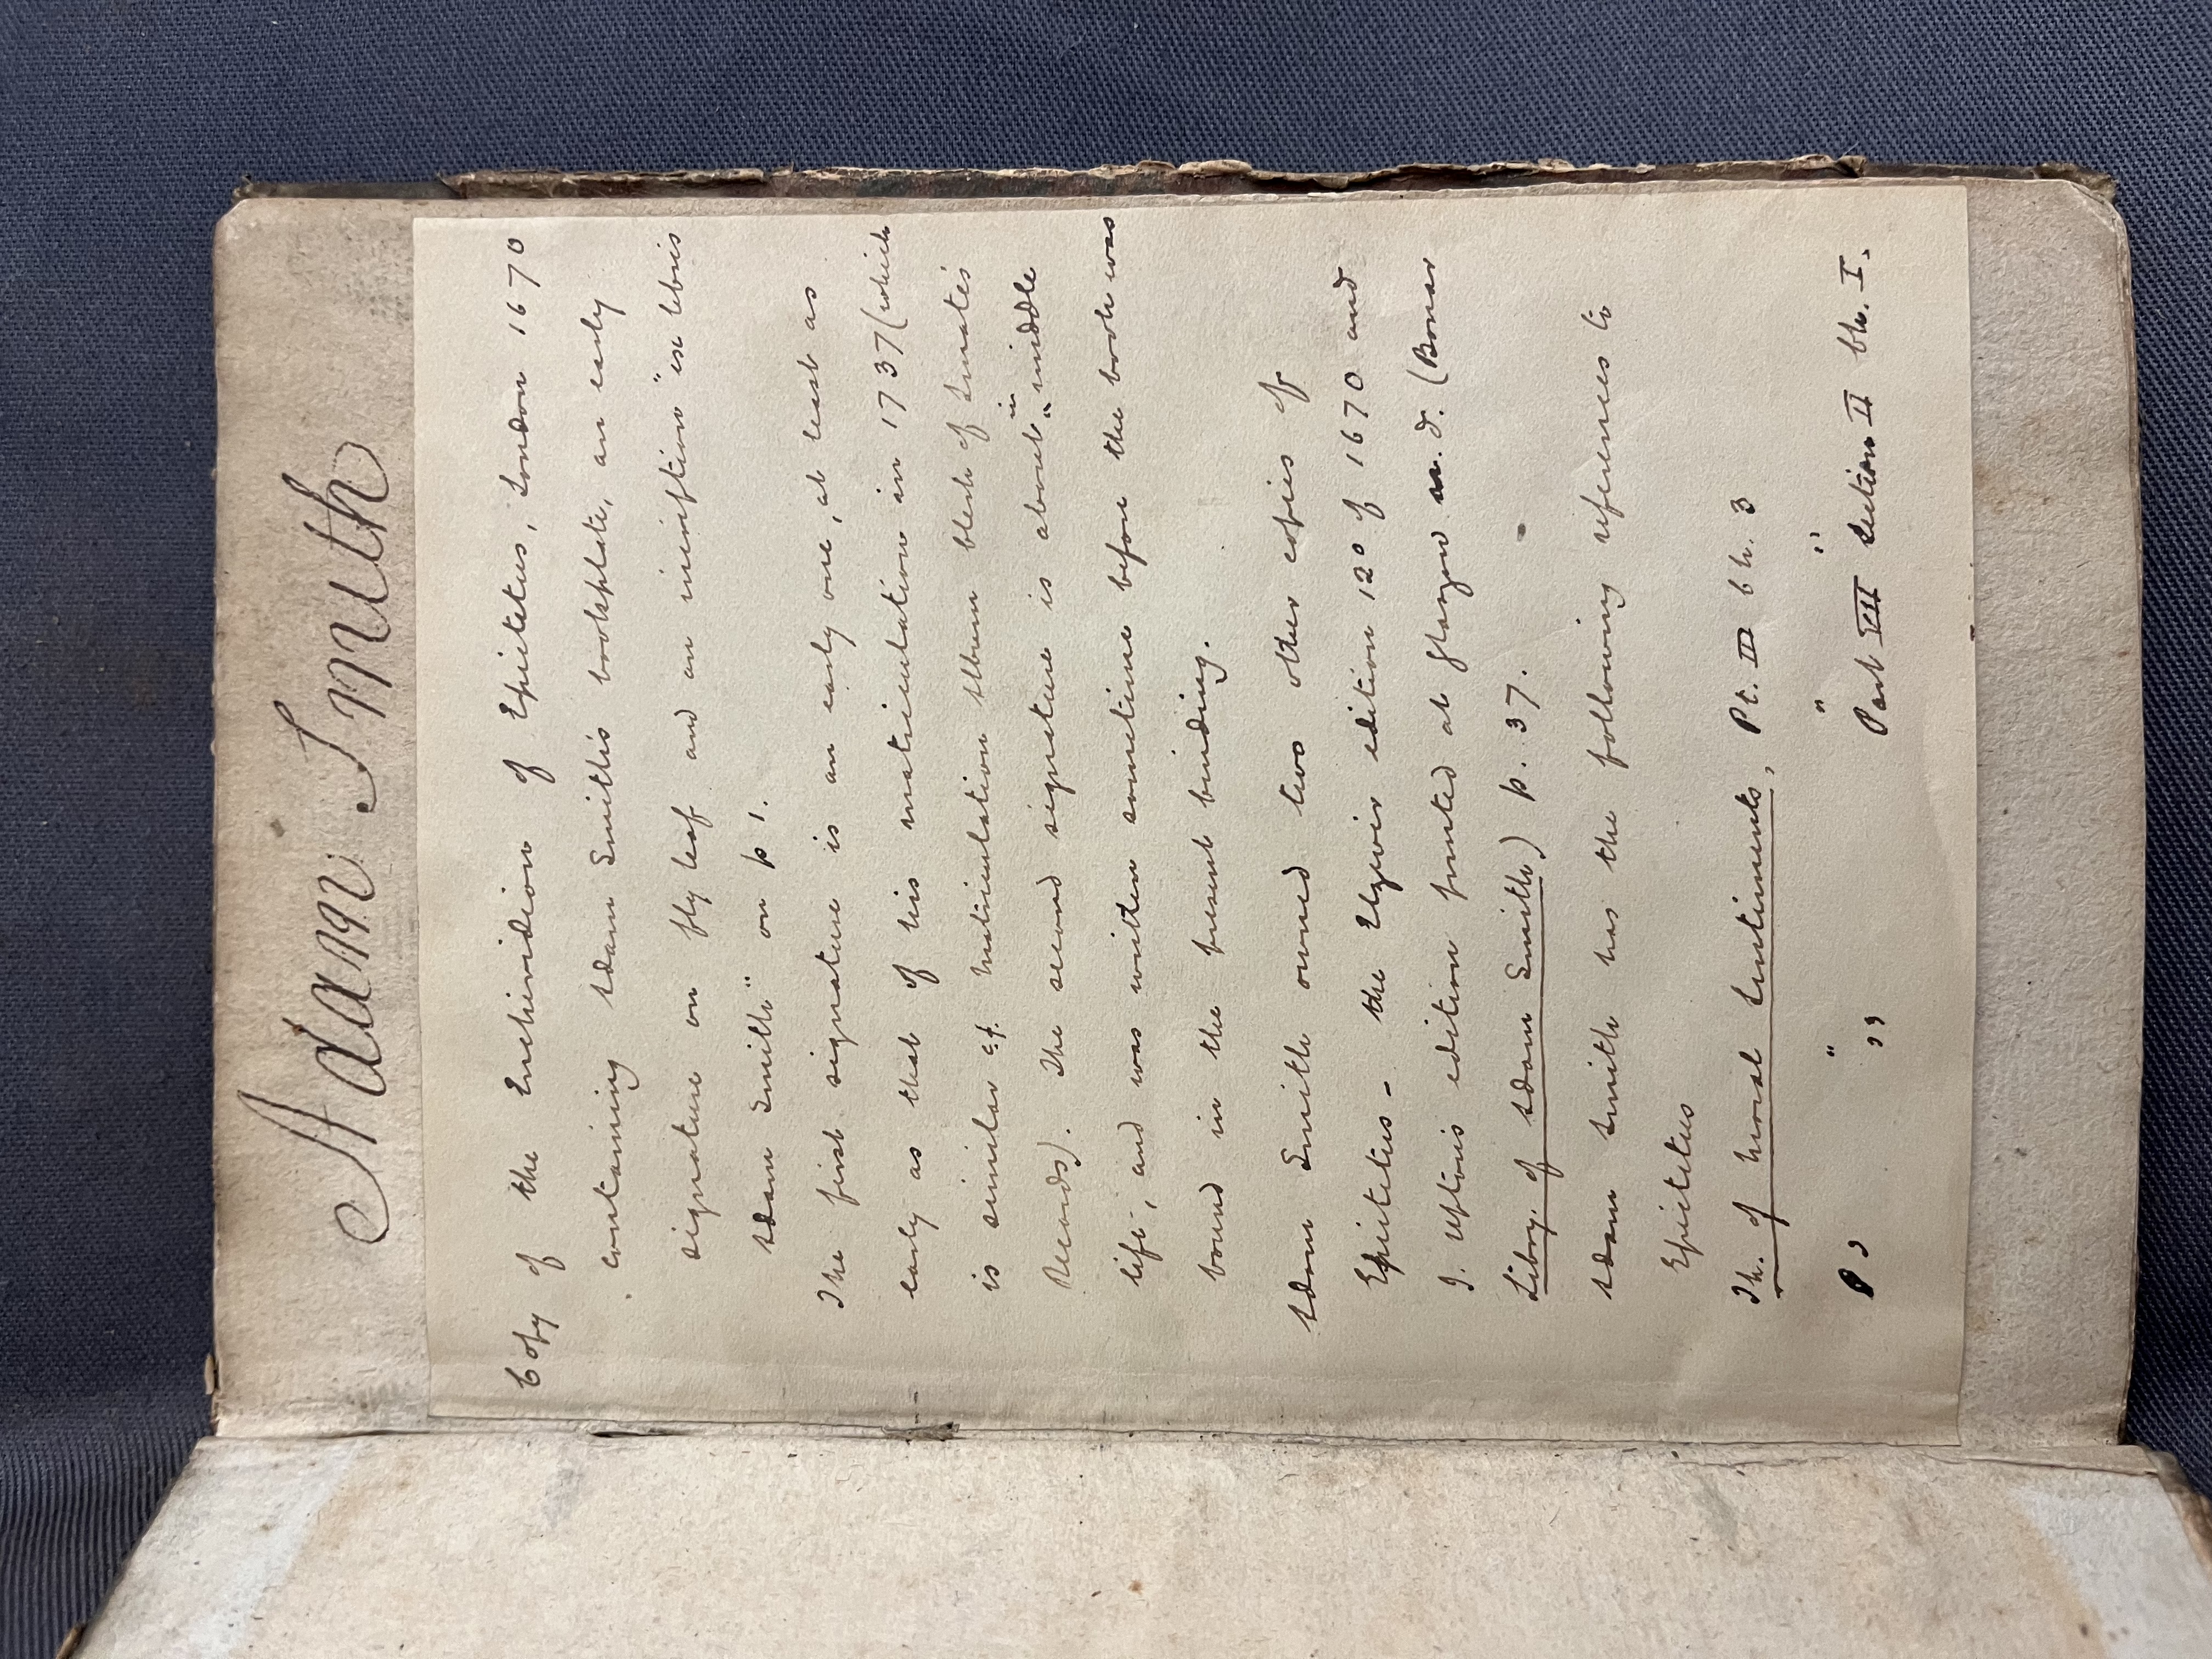 Adam Smith
Copy of the Enchiridion of Epictetus, London 1670
containing Adam Smith's bookplate, an early
signature on fly leaf and an inscription "ex libris
Adam Smith" on p 1.
The first signature is an early one, at least as
early as that of his matriculation in 1737 (which
is similar cf. Matriculation Album block of
Records). The second signature is about in "middle
life", and was written sometime before the book was
bound in the present binding.
Adam Smith owned two other copies of
Epictetus - the Elzevir edition 12º of 1670 and
J. Upton's edition printed at Glasgow n.d. (Bonar
Library of Adam Smith) p. 37.
Adam Smith has the following references to
Epictetus
Th. of Moral Sentiments, Pt. III Ch. 3
" " "
" Part VII Section II Ch. I.